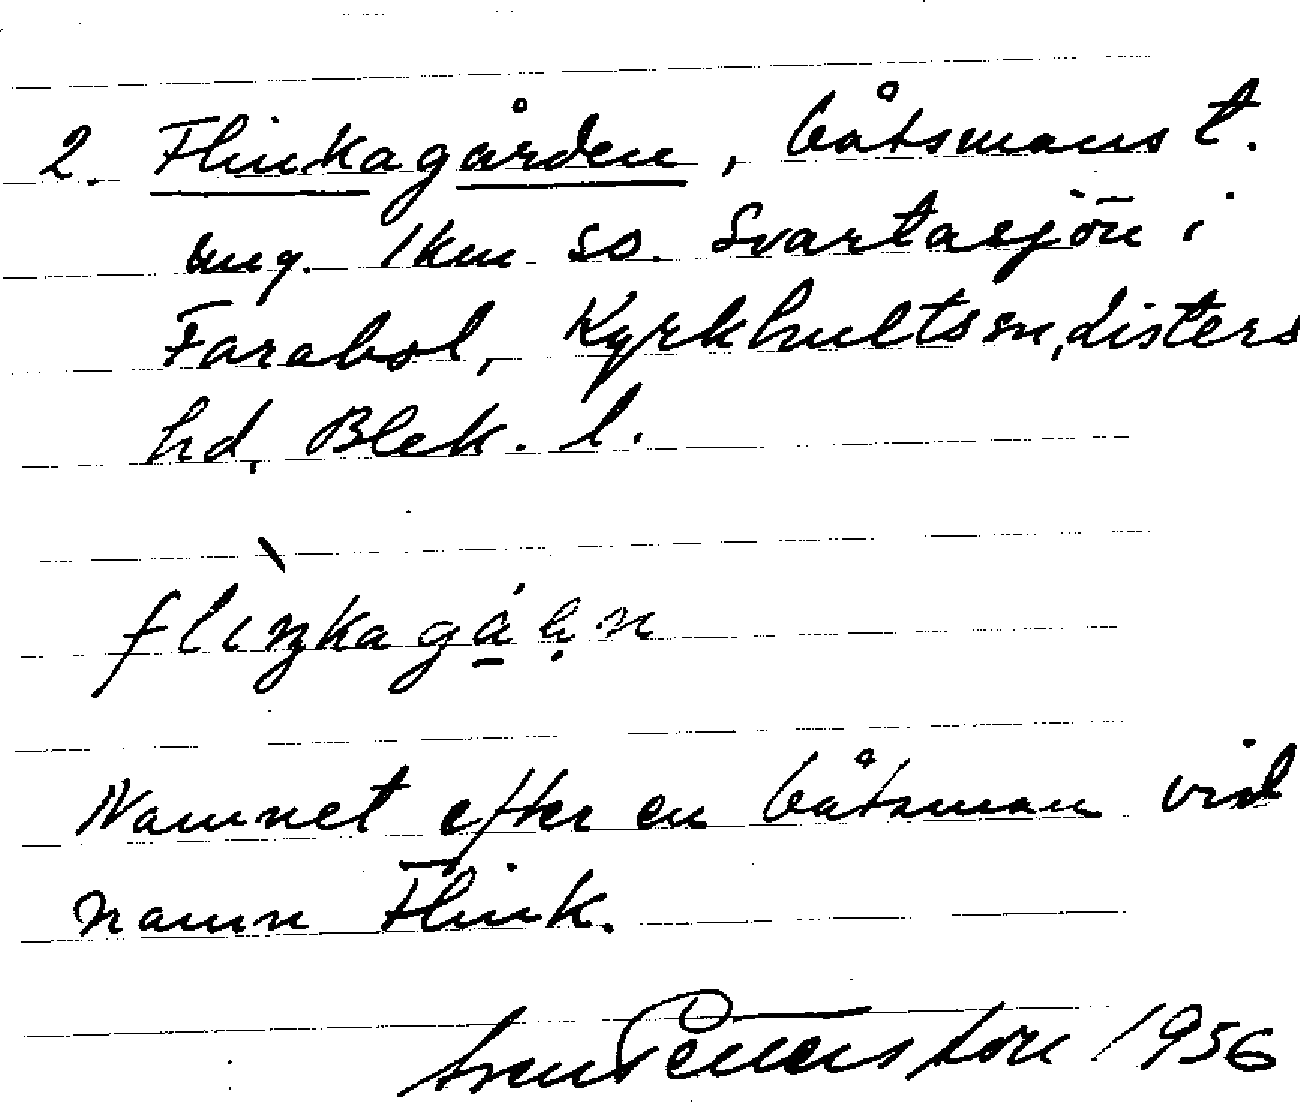 2. Flinkagården, båtsmanst.
ung. 1 km so. Svartasjön i
Farabol, Kyrkhults sn, Listers
hd, Blek. l.
flìŋkagǻṇ
Namnet efter en båtsman vid
namn Flink.
Sven Petterson 1956